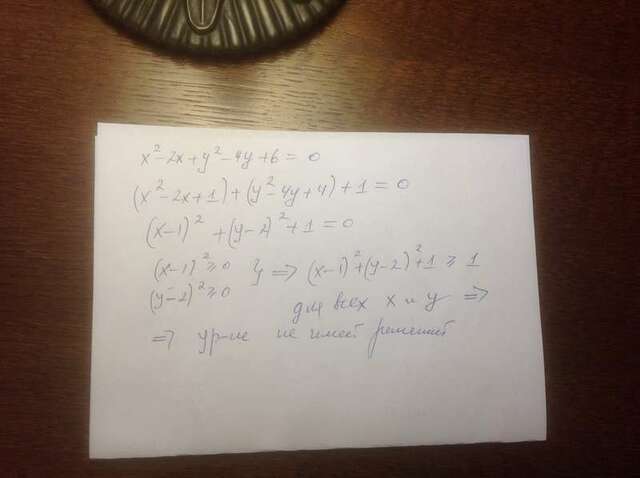 x² - 2x + y² - 4y + 6 = 0
(x² - 2x + 1) + (y² - 4y + 4) + 1 = 0
(x-1)² + (y-2)² + 1 = 0
(x-1)² ≥ 0 } => (x-1)² + (y-2)² + 1 ≥ 1
(y-2)² ≥ 0
для всех x и y =>
=> ур-ие не имеет решений